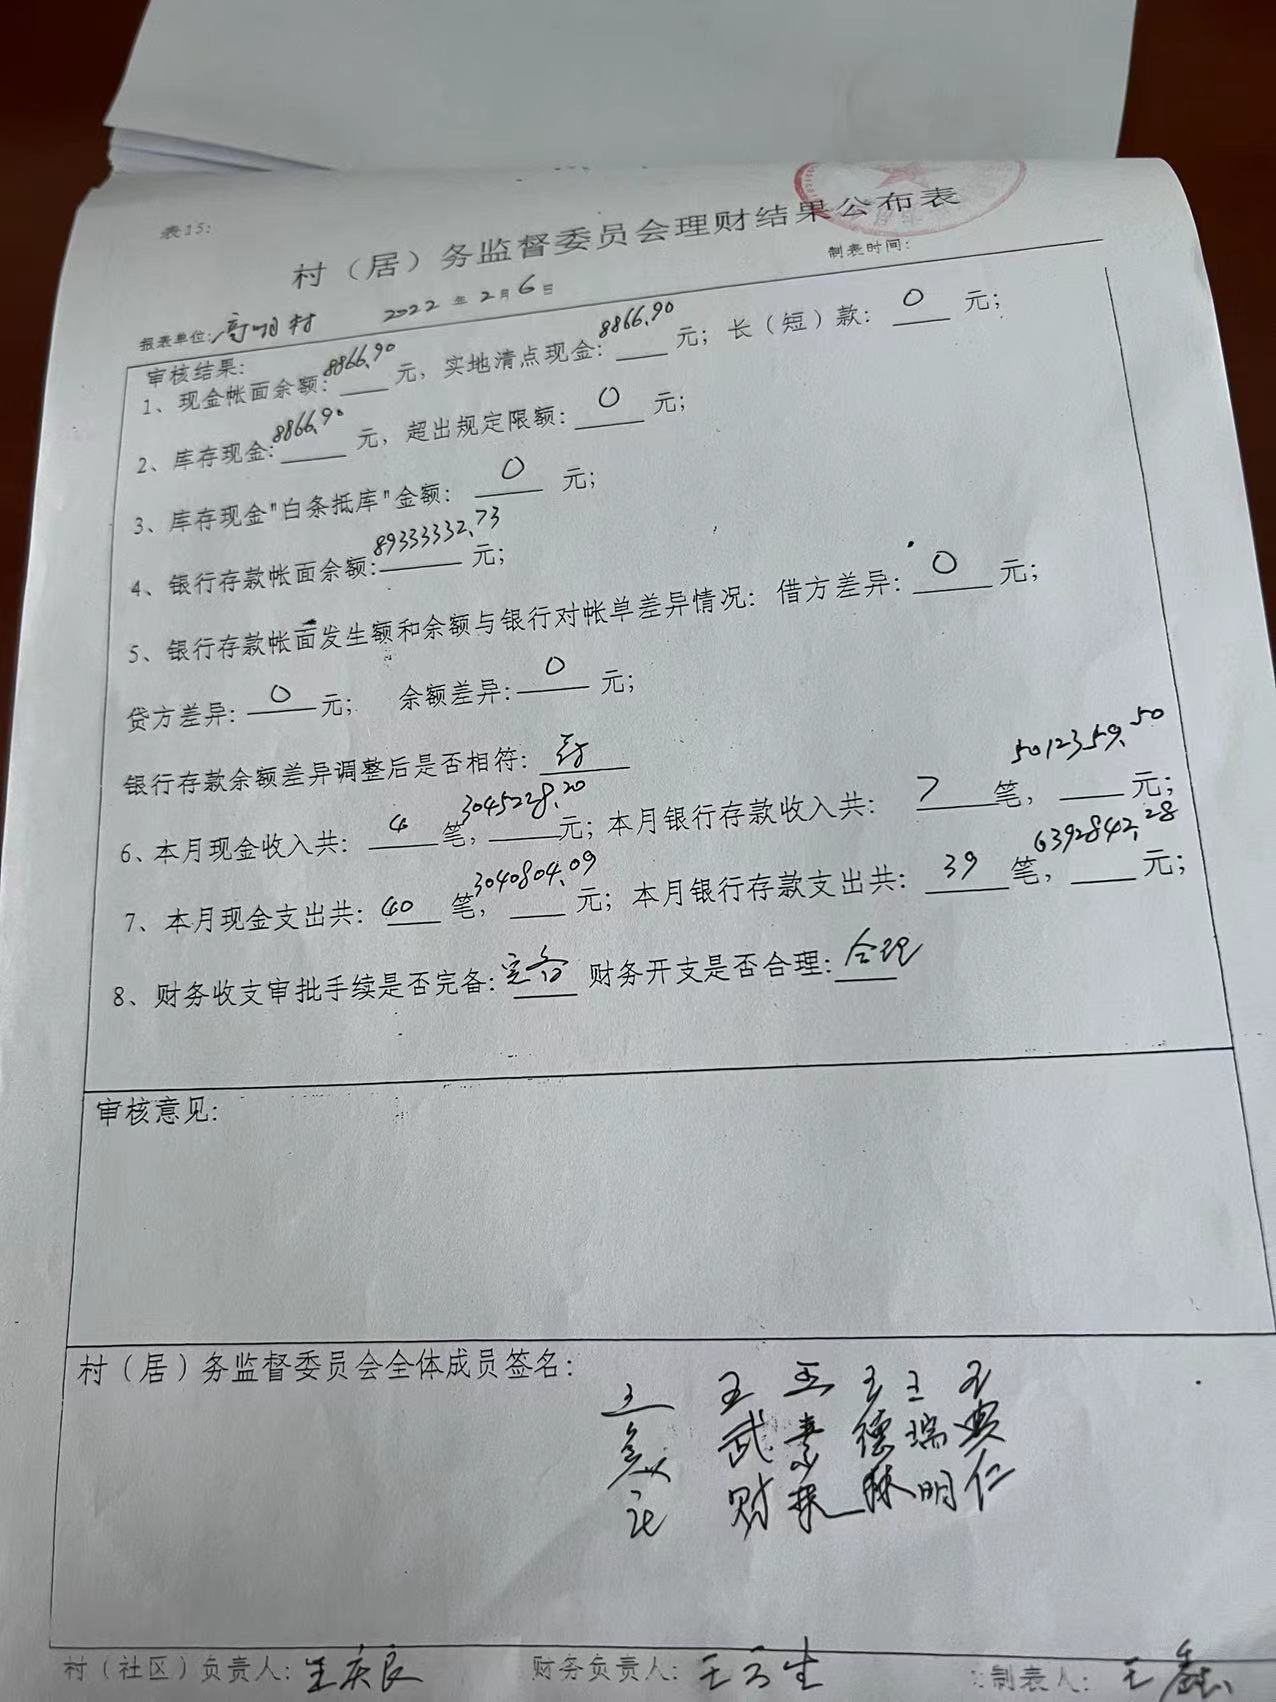 表15：
村（居）务监督委员会理财结果公布表
制表时间：
报表单位：高明村 2022年2月6日
审核结果：
1、现金帐面余额：8866.90元，实地清点现金：8866.90元；长（短）款：0元；
2、库存现金：8866.90元，超出规定限额：0元；
3、库存现金"白条抵库"金额：0元；
4、银行存款帐面余额：89333332.73元；
5、银行存款帐面发生额和余额与银行对帐单差异情况：借方差异：0元；
贷方差异：0元； 余额差异：0元；
银行存款余额差异调整后是否相符：
6、本月现金收入共：4笔，3045228.20元；本月银行存款收入共：7笔，5012359.50元；
7、本月现金支出共：40笔，3040804.09元；本月银行存款支出共：39笔，6392842.28元；
8、财务收支审批手续是否完备：完备 财务开支是否合理：合理
审核意见：
村（居）务监督委员会全体成员签名：
王武财 王德林 王瑞明 王典仁
村（社区）负责人：王庆良 财务负责人：王云生 制表人：王磊